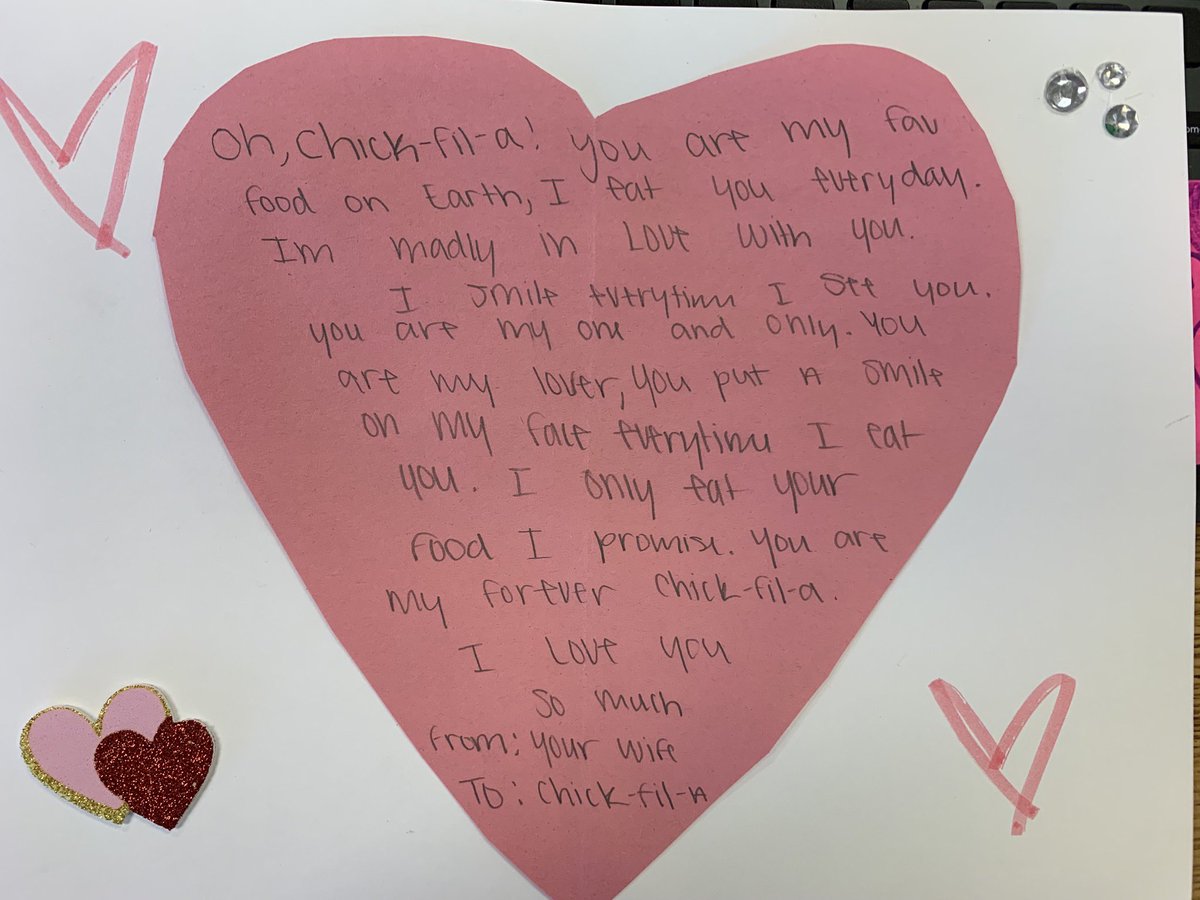 Oh, Chick-fil-a! You are my fav
food on Earth, I eat you everyday.
Im madly in Love with you.
I smile everytime I see you.
you are my one and only. You
are my lover, you put A smile
on my face everytime I eat
you. I only eat your
food I promise. You are
my forever Chick-fil-a.
I Love you
so much
from: your wife
To: Chick-fil-A